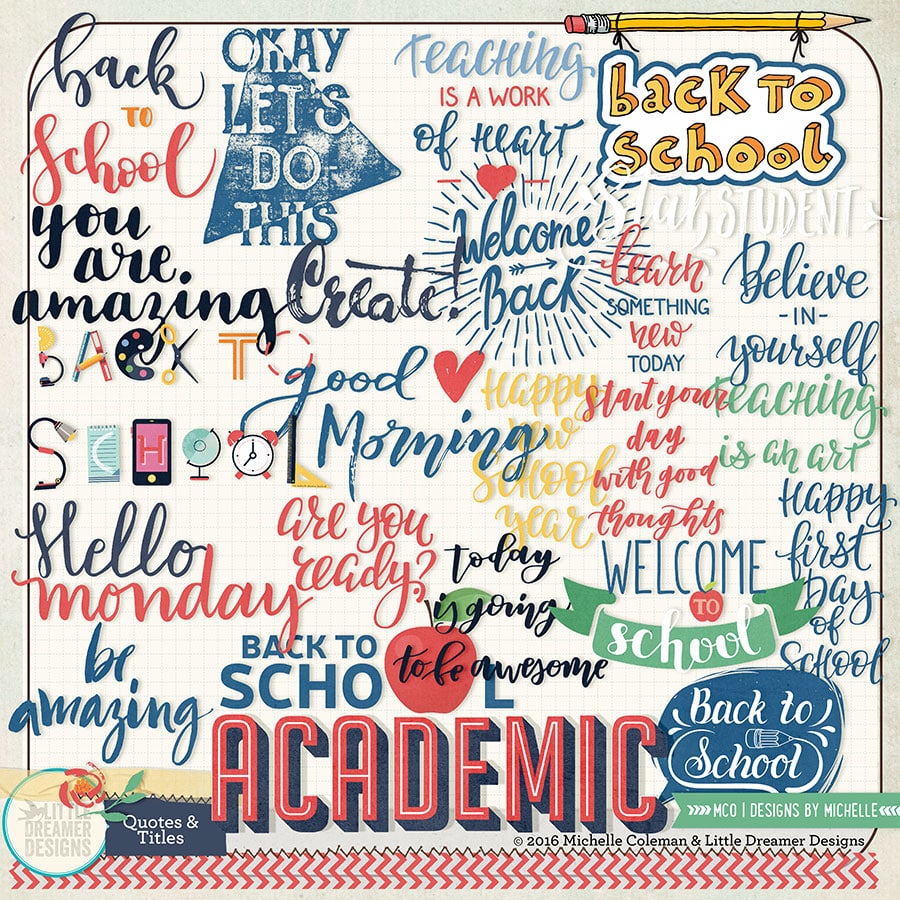 back
to
School
OKAY
LET'S
-DO-
THIS
Teaching
IS A WORK
of Heart
back to
school
Star STUDENT
you
are
amazing
Create!
Welcome!
Back
learn
SOMETHING
new
TODAY
Believe
-IN-
yourself
BACK TO
SCHOOL
good
Morning
Happy
new
School
year
start your
day
with good
thoughts
teaching
is an art
Happy
first
Day
of
School
Hello
monday
are you
ready?
today
is going
to be awesome
WELCOME
TO
school
be
amazing
BACK TO
SCHOOL
ACADEMIC
Back to
School
LITTLE
DREAMER
DESIGNS
Quotes &
Titles
MCO | DESIGNS BY MICHELLE
© 2016 Michelle Coleman & Little Dreamer Designs